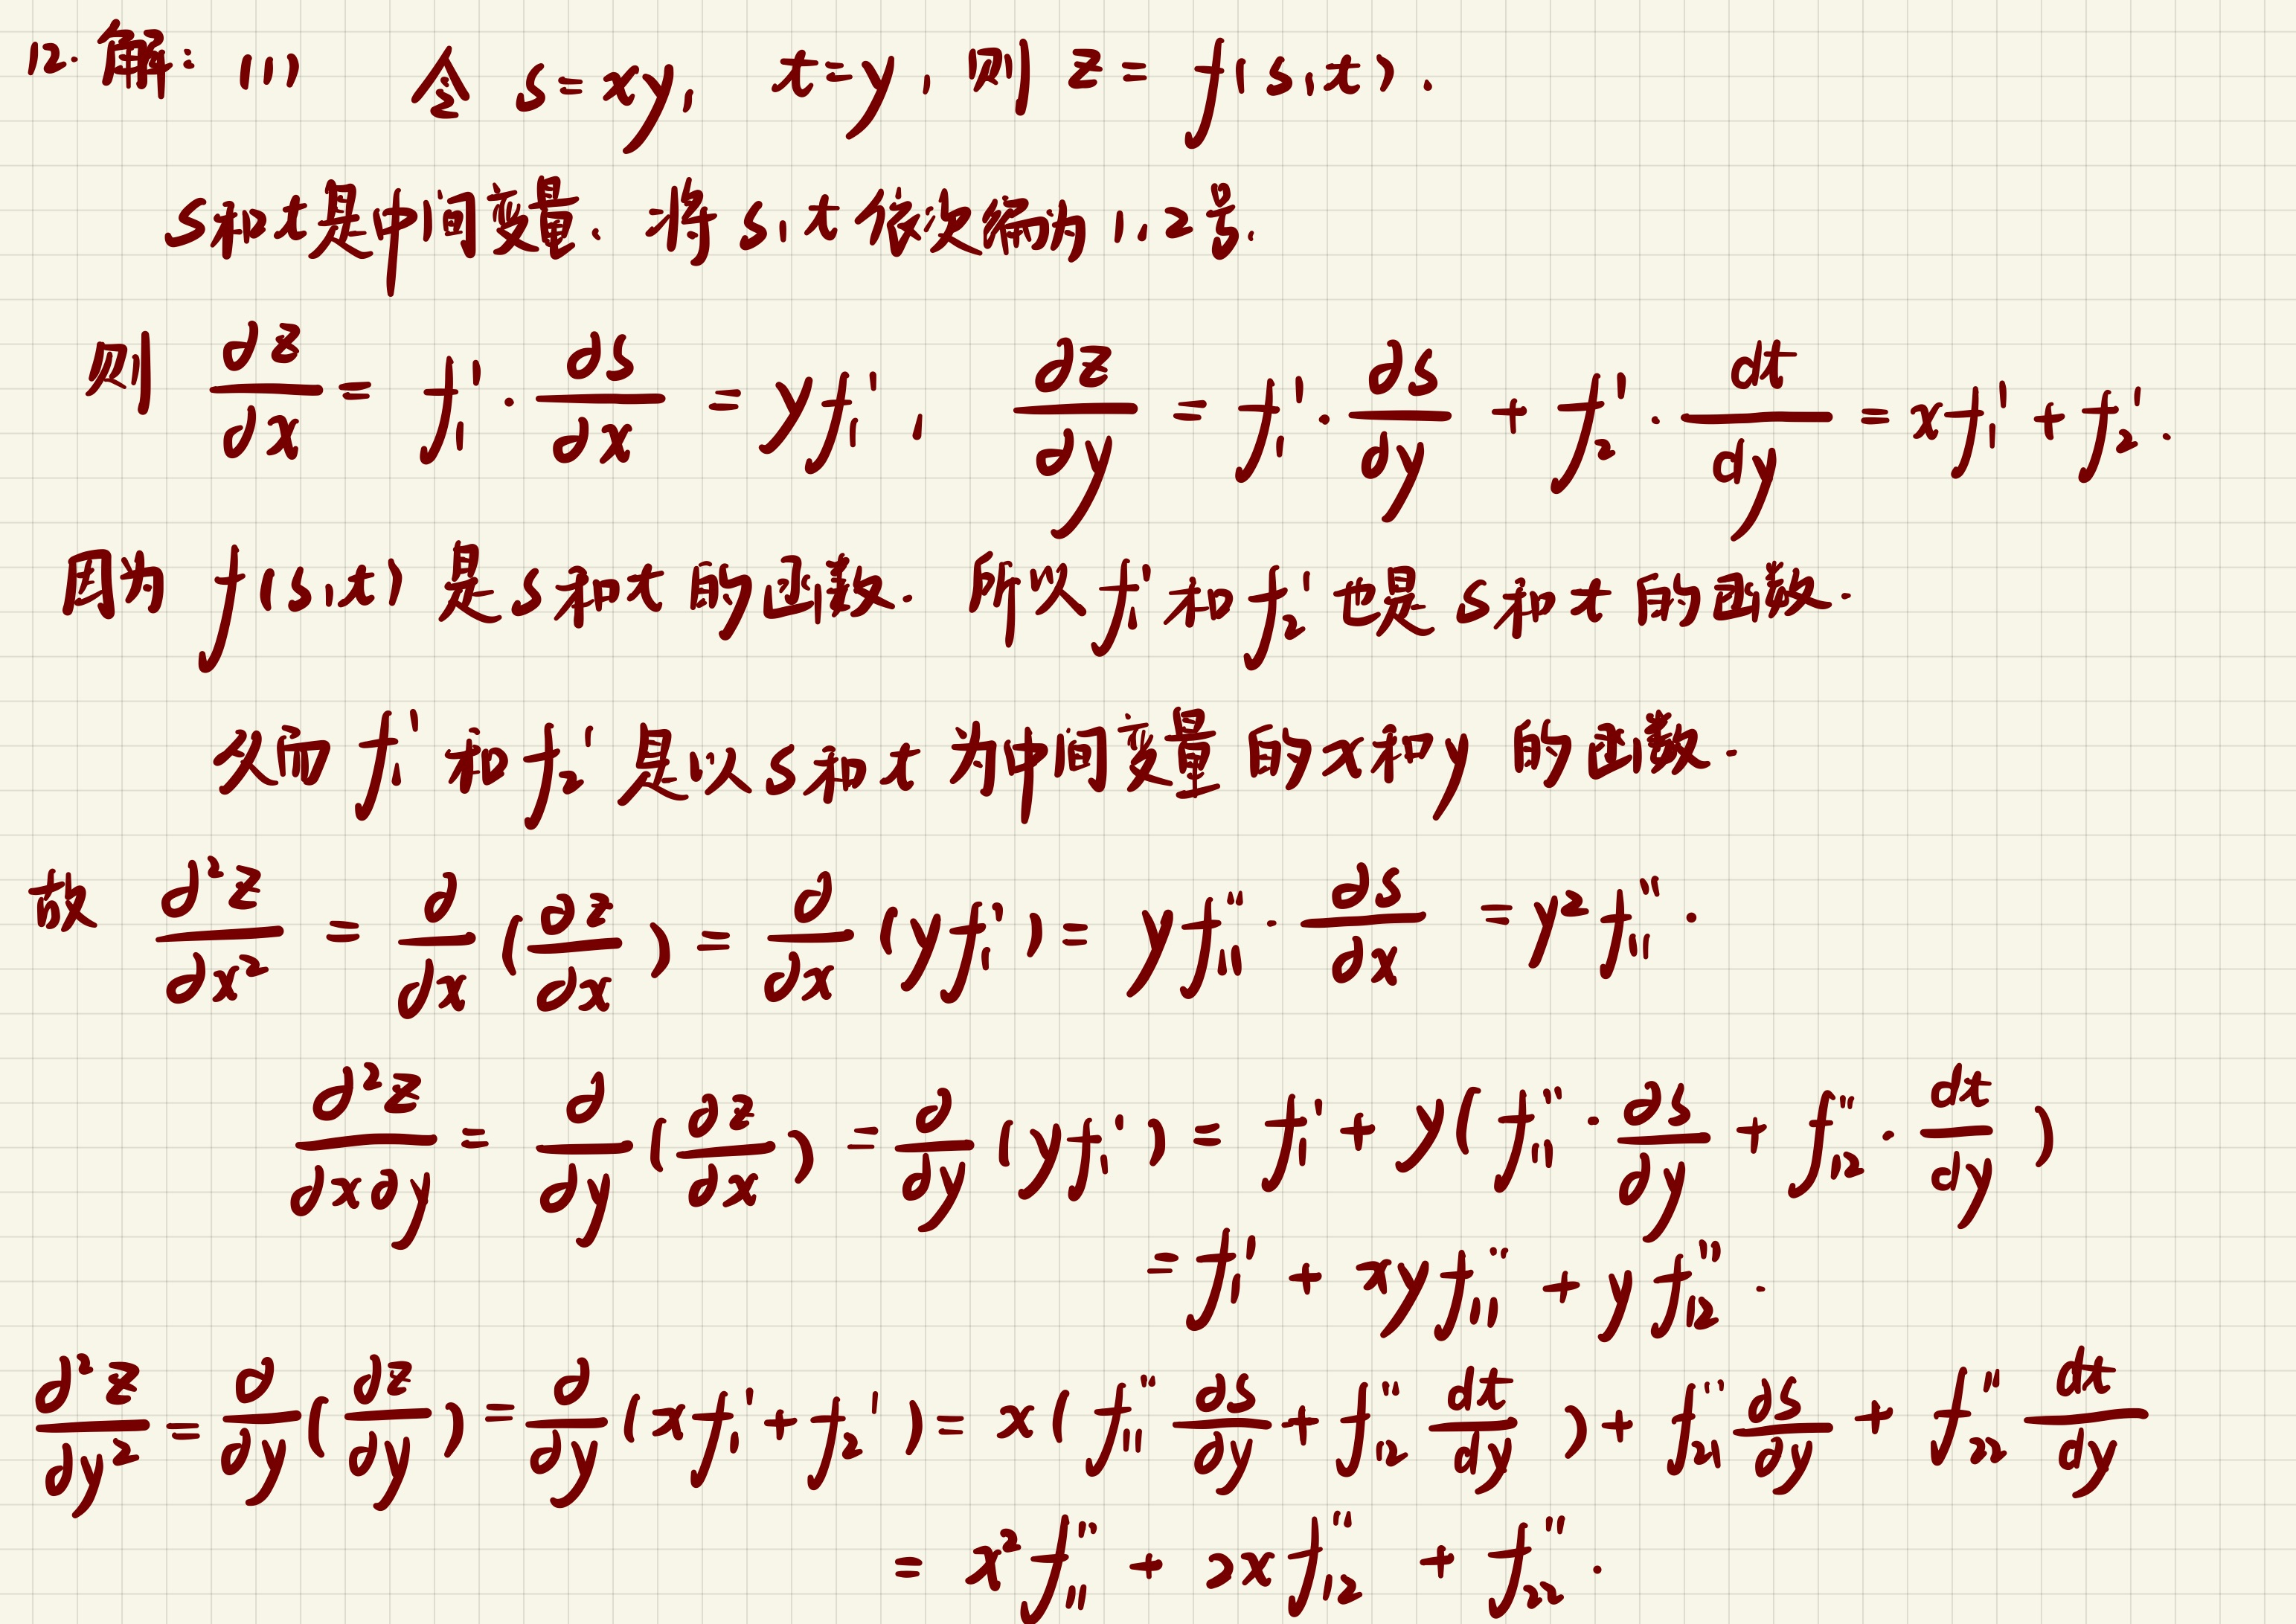 12. 解: (1) 令 s=xy, t=y, 则 z = f(s,t).
s和t是中间变量. 将 s, t 依次编为 1, 2号.
则 ∂z/∂x = f₁' · ∂s/∂x = yf₁', ∂z/∂y = f₁' · ∂s/∂y + f₂' · dt/dy = xf₁' + f₂'.
因为 f(s,t) 是 s 和 t 的函数. 所以 f₁' 和 f₂' 也是 s 和 t 的函数.
从而 f₁' 和 f₂' 是以 s 和 t 为中间变量的 x 和 y 的函数.
故 ∂²z/∂x² = ∂/∂x (∂z/∂x) = ∂/∂x (yf₁') = yf₁₁'' · ∂s/∂x = y²f₁₁''.
∂²z/∂x∂y = ∂/∂y (∂z/∂x) = ∂/∂y (yf₁') = f₁' + y(f₁₁'' · ∂s/∂y + f₁₂'' · dt/dy)
= f₁' + xyf₁₁'' + yf₁₂''.
∂²z/∂y² = ∂/∂y (∂z/∂y) = ∂/∂y (xf₁' + f₂') = x(f₁₁'' ∂s/∂y + f₁₂'' dt/dy) + f₂₁'' ∂s/∂y + f₂₂'' dt/dy
= x²f₁₁'' + 2xf₁₂'' + f₂₂''.